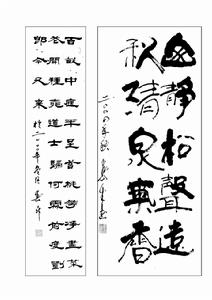 幽靜松聲遠
秋清泉氣香
二〇〇四年秋
百畝中庭半是苔桃花淨盡菜
花開種桃道士歸何處前度劉
郎今又來